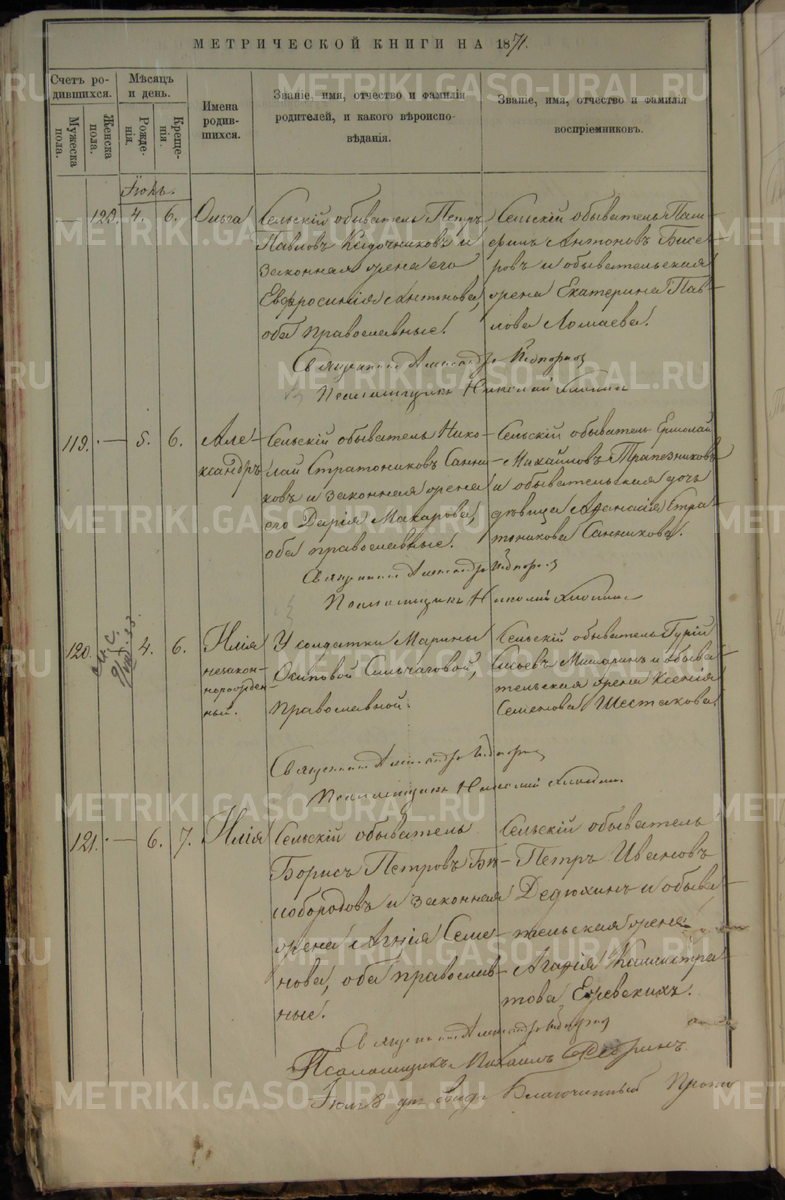 МЕТРИЧЕСКОЙ КНИГИ НА 1871.
Счетъ ро-
дившихся.
Мужеска
пола.
Женска
пола.
Мѣсяцъ
и день.
Рожде-
нія.
Креще-
нія.
Имена
родив-
шихся.
Званіе, имя, отчество и фамилія
родителей, и какого вѣроиспо-
вѣданія.
Званіе, имя, отчество и фамилія
воспріемниковъ.
Іюль.
— 123. 4. 6. Ольга
Сельскій обыватель Петръ
Павловъ Кадочниковъ и
законная жена его
Евфросинія Антонова,
оба православные.
Сельскій обыватель Пам-
филъ Антоновъ Бисе-
ровъ и обывательская
жена Екатерина Пав-
лова Ломаева.
Священникъ Александръ
Псаломщикъ Николай
119. — 5. 6. Але-
ксандръ
Сельскій обыватель Нико-
лай Стратониковъ Санни-
ковъ и законная жена
его Дарія Макарова,
оба православные.
Сельскій обыватель Ермолай
Михайловъ Трапезниковъ
и обывательская дочь
дѣвица Афанасія Стра-
тоникова Санникова.
Священникъ Александръ
Псаломщикъ Николай
120. 4. 6. Илія
незакон-
норожден-
ный.
У солдатки Марины
Осиповой Сильчаговой,
православной.
Сельскій обыватель Гурій
Сысоевъ и обыва-
тельская жена Ксенія
Семенова Шестакова.
Священникъ Александръ
Псаломщикъ Николай
121. — 6. 7. Илія
Сельскій обыватель
Борисъ Петровъ Бѣ-
лобородовъ и законная
жена Агнія Семе-
нова, оба православ-
ные.
Сельскій обыватель
Петръ Ивановъ
Дедюхинъ и обыва-
тельская жена
Агафія Каллистра-
това Ежевскихъ.
Священникъ Александръ
Псаломщикъ Михаилъ
Іюля 8 дня свид. Благочинный Прото
METRIKI.GASO-URAL.RU